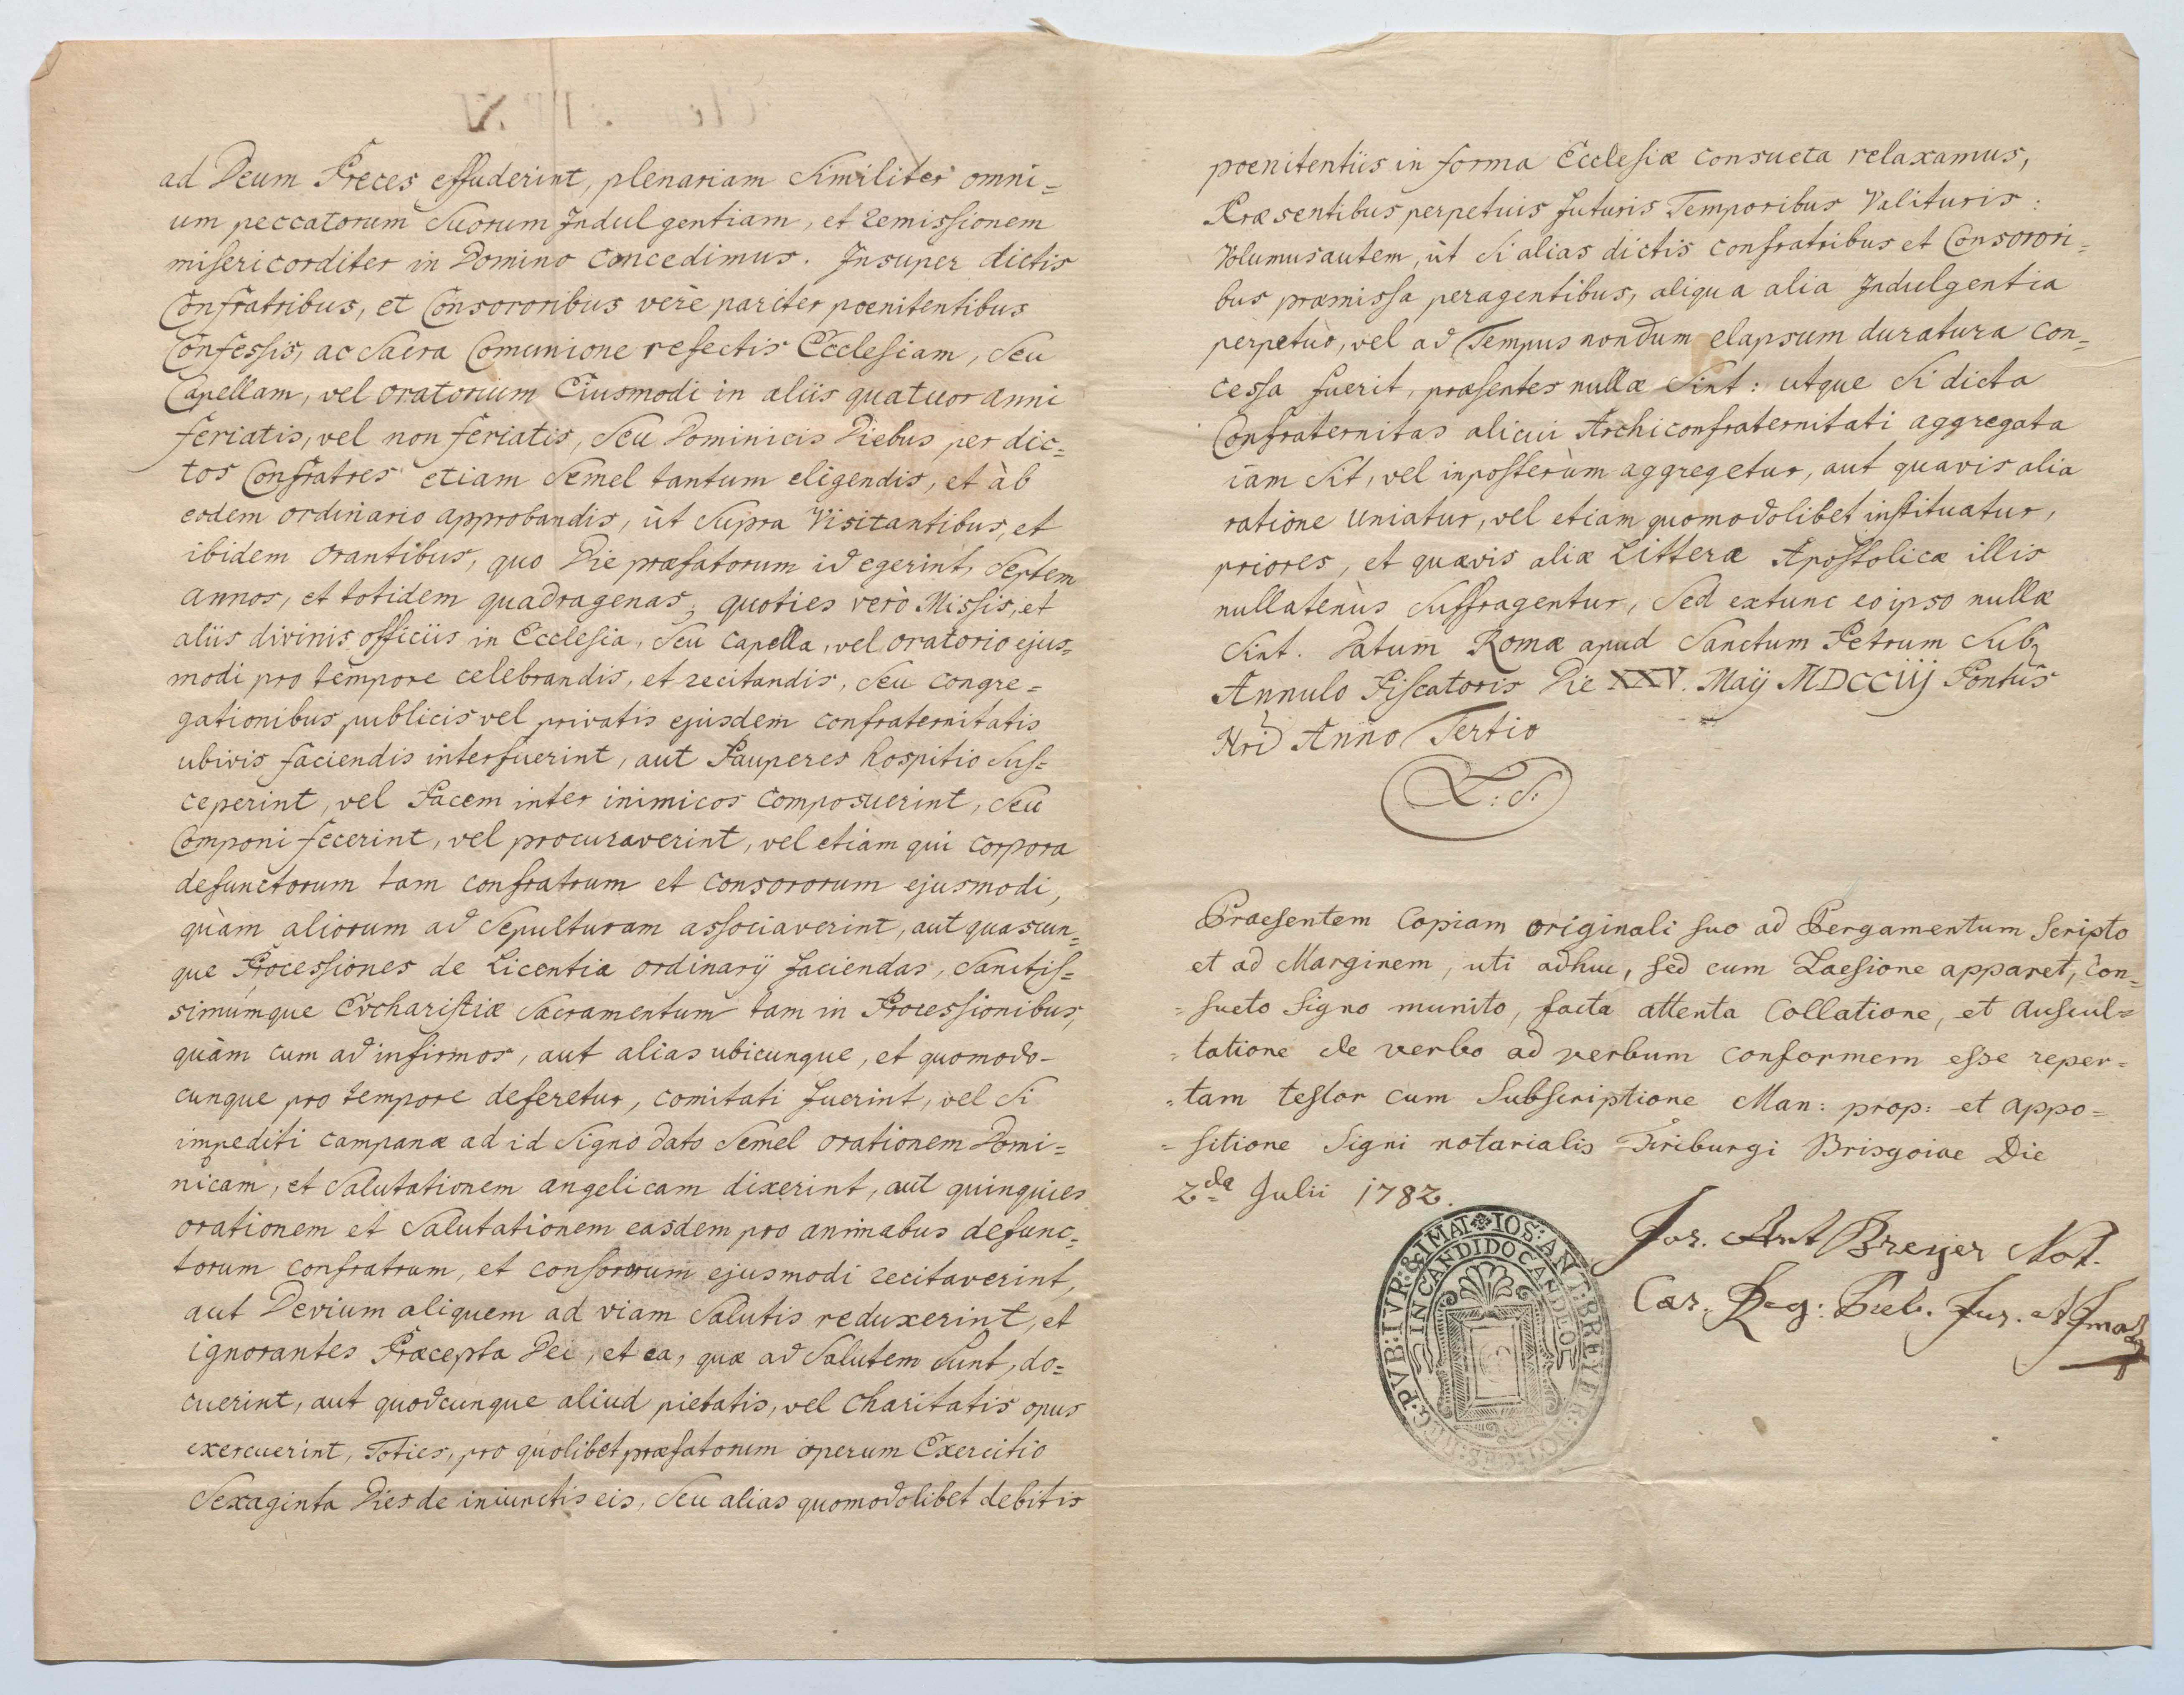 ad Deum Preces effuderint, plenariam Similiter omni=
um peccatorum Suorum Indulgentiam, et remissionem
misericorditer in Domino Concedimus. Insuper dictis
Confratribus, et Consororibus verè pariter poenitentibus
Confessis, ac Sacra Comunione refectis Ecclesiam, Seu
Capellam, vel oratorium Eiusmodi in aliis quatuor anni
feriatis, vel non feriatis, Seu Dominicis Diebus per dic=
tos Confratres etiam Semel tantum eligendis, et àb
eodem ordinario approbandis, ùt Supra Visitantibus, et
ibidem orantibus, quo Die præfatorum id egerint, Septem
annos, et totidem quadragenas; quoties verò Missis, et
aliis divinis officiis in Ecclesia, Seu Capella, vel oratorio ejus=
modi pro tempore celebrandis, et recitandis, Seu congre=
gationibus publicis vel privatis ejusdem confraternitatis
ubivis faciendis interfuerint, aut Pauperes hospitio Sus=
ceperint, vel Pacem inter inimicos composuerint, Seu
Componi fecerint, vel procuraverint, vel etiam qui corpora
defunctorum tam confratrum et consororum ejusmodi,
quàm aliorum ad Sepulturam associaverint, aut quascun=
que Processiones de Licentia ordinarij faciendas, Sanctis=
simumque Evcharistiæ Sacramentum tam in Processionibus,
quàm cum ad infirmos, aut alias ubicunque, et quomodo-
cunque pro tempore deferetur, comitati fuerint, vel Si
impediti campanæ ad id Signo dato Semel orationem Domi=
nicam, et Salutationem angelicam dixerint, aut quinquies
orationem et Salutationem easdem pro animabus defunc=
torum confratrum, et consororum ejusmodi recitaverint,
aut Devium aliquem ad viam Salutis reduxerint, et
ignorantes Præcepta Dei, et ea, quæ ad Salutem Sunt, do=
cuerint, aut quodcunque aliud pietatis, vel Charitatis opus
exercuerint, Toties, pro quolibet præfatorum operum Exercitio
Sexaginta Dies de iniunctis eis, Seu alias quomodolibet debitis
poenitentiis in forma Ecclesiæ consueta relaxamus,
Præsentibus perpetuis futuris Temporibus Valituris:
Volumus autem, ùt Si alias dictis confratribus et Consorori=
bus præmissa peragentibus, aliqua alia Indulgentia
perpetuò, vel ad Tempus nondum elapsum duratura con=
cessa fuerit, præsentes nullæ Sint: utque Si dicta
Confraternitas alicui Archiconfraternitati aggregata
iam Sit, vel inposterùm aggregetur, aut quavis alia
ratione uniatur, vel etiam quomodolibet instituatur,
priores, et quævis aliæ Litteræ Apostolicæ illis
nullatenùs Suffragentur, Sed extunc eo ipso nullæ
Sint. Datum Romæ apud Sanctum Petrum Sub
Annulo Piscatoris Die XXV. Maij MDCCiij Pontus
Nri Anno Tertio
L: S:
Praesentem Copiam originali suo ad Pergamentum Scripto
et ad Marginem, uti adhuc, sed cum Laesione apparet, Con=
=sueto Signo munito, facta attenta Collatione, et Auscul=
=tatione de verbo ad verbum conformem esse reper=
=tam testor cum Subscriptione Man: prop: et appo=
=sitione Signi notarialis Friburgi Brisgoiae Die
2da Julii 1782.
Jos. Ant Breyer Not.
Caes. Reg: Pub. Jur. et Imat
IOS: ANT: BREYER: NOT: CÆS: REG: PVB: IVR: & IMAT
IN CANDIDO CANDOR